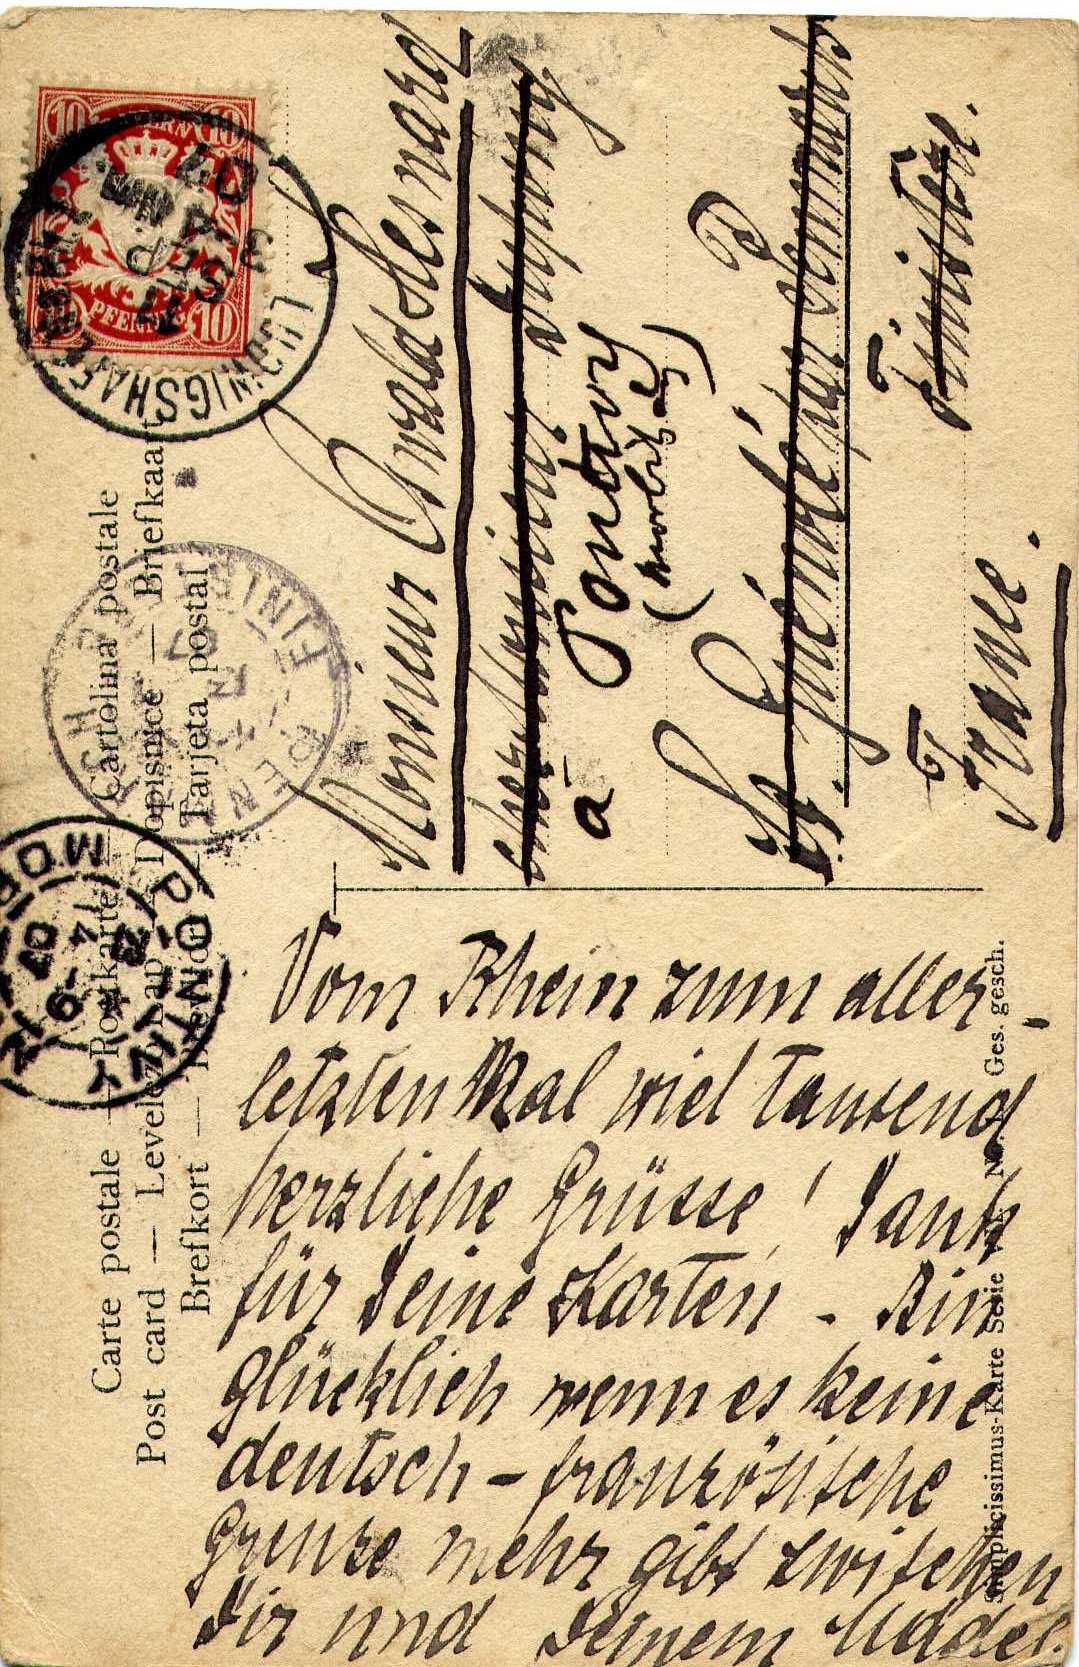 Carte postale — Postkarte — Cartolina postale
Post card — Levelező-Lap — Dopisnice — Briefkaart
Brefkort — Brevkort — Tarjeta postal
BAYERN
10 10
PFENNIG
10
LUDWIGSHAFEN
27 SEP
07
FINISTERE
PONTIVY
MORBIHAN
4
07
Monsieur
à Pontivy
(Morbihan)
Finistère.
France.
Vom Rhein zum aller-
letzten Mal viel tausend
herzliche Grüsse! Dank
für Deine Karten - Bin
glücklich wenn es keine
deutsch-französische
Grenze mehr gibt zwischen
Dir und Deinem Mädel.
Simplicissimus-Karte Serie No. Ges. gesch.